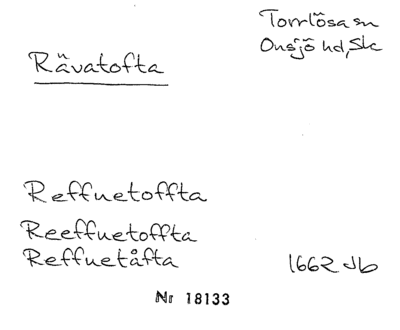 Torrlösa sn
Onsjö hd, Sk
Rävatofta
Reffuetoffta
Reeffuetoffta
Reffuetåfta 1662 Jb
Nr 18133